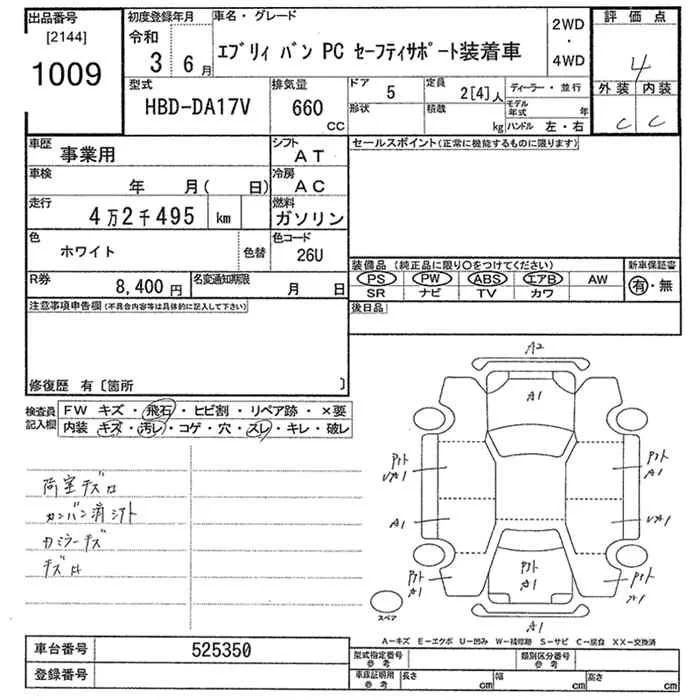 出品番号 初度登録年月 車名・グレード 評価点
[2144] 令和 2WD
1009 3 6月 エブリィ バン PC セーフティサポート装着車 ・ 4
4WD
型式 排気量 ドア 5 定員 2[4]人 ディーラー・並行 外装 内装
HBD-DA17V 660 CC 形状 積載 kg モデル年式 年 C C
ハンドル 左・右
車歴 事業用 シフト AT セールスポイント(正常に機能するものに限ります)
車検 年 月( 日) 冷房 AC
走行 4万2千495 km 燃料 ガソリン
色 ホワイト 色替 色コード 26U
装備品(純正品に限り〇をつけてください) 新車保証書
R券 8,400円 名変通知期限 月 日 PS PW ABS エアB AW 有・無
SR ナビ TV カワ
注意事項申告欄(不具合内容等は具体的に記入して下さい) 後日品
修復歴 有〔箇所 〕
検査員記入欄 FW キズ・飛石・ヒビ割・リペア跡・×要
内装 キズ・汚レ・コゲ・穴・スレ・キレ・破レ
A2
A1
アトト アトト
UA1 A1
A1 UA1
アトト アトト アトト
A1 A1 A1
A1
荷室キズ
カンバン済
カミラーキズ
キズ
スペア
A-キズ E-エクボ U-凹み W-補修跡 S-サビ C-腐食 XX-交換済
車台番号 525350 型式指定番号 参考 類別区分番号 参考
登録番号 車庫証明用 参考 長さ cm 幅 cm 高さ cm